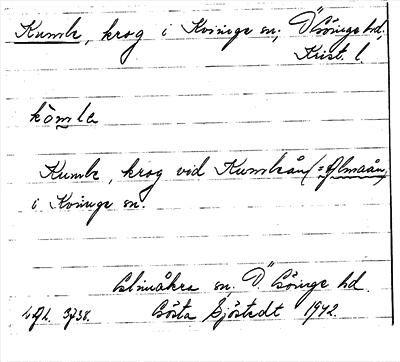 Kumle, krog i Kvinge sn, Ö Göinge hd,
Krist. l.
kömla
Kumle, krog vid Kumleån (= Almaån)
i Kvinge sn.
Glimåkra sn. Ö Göinge hd.
Gösta Sjöstedt 1942.
3738.